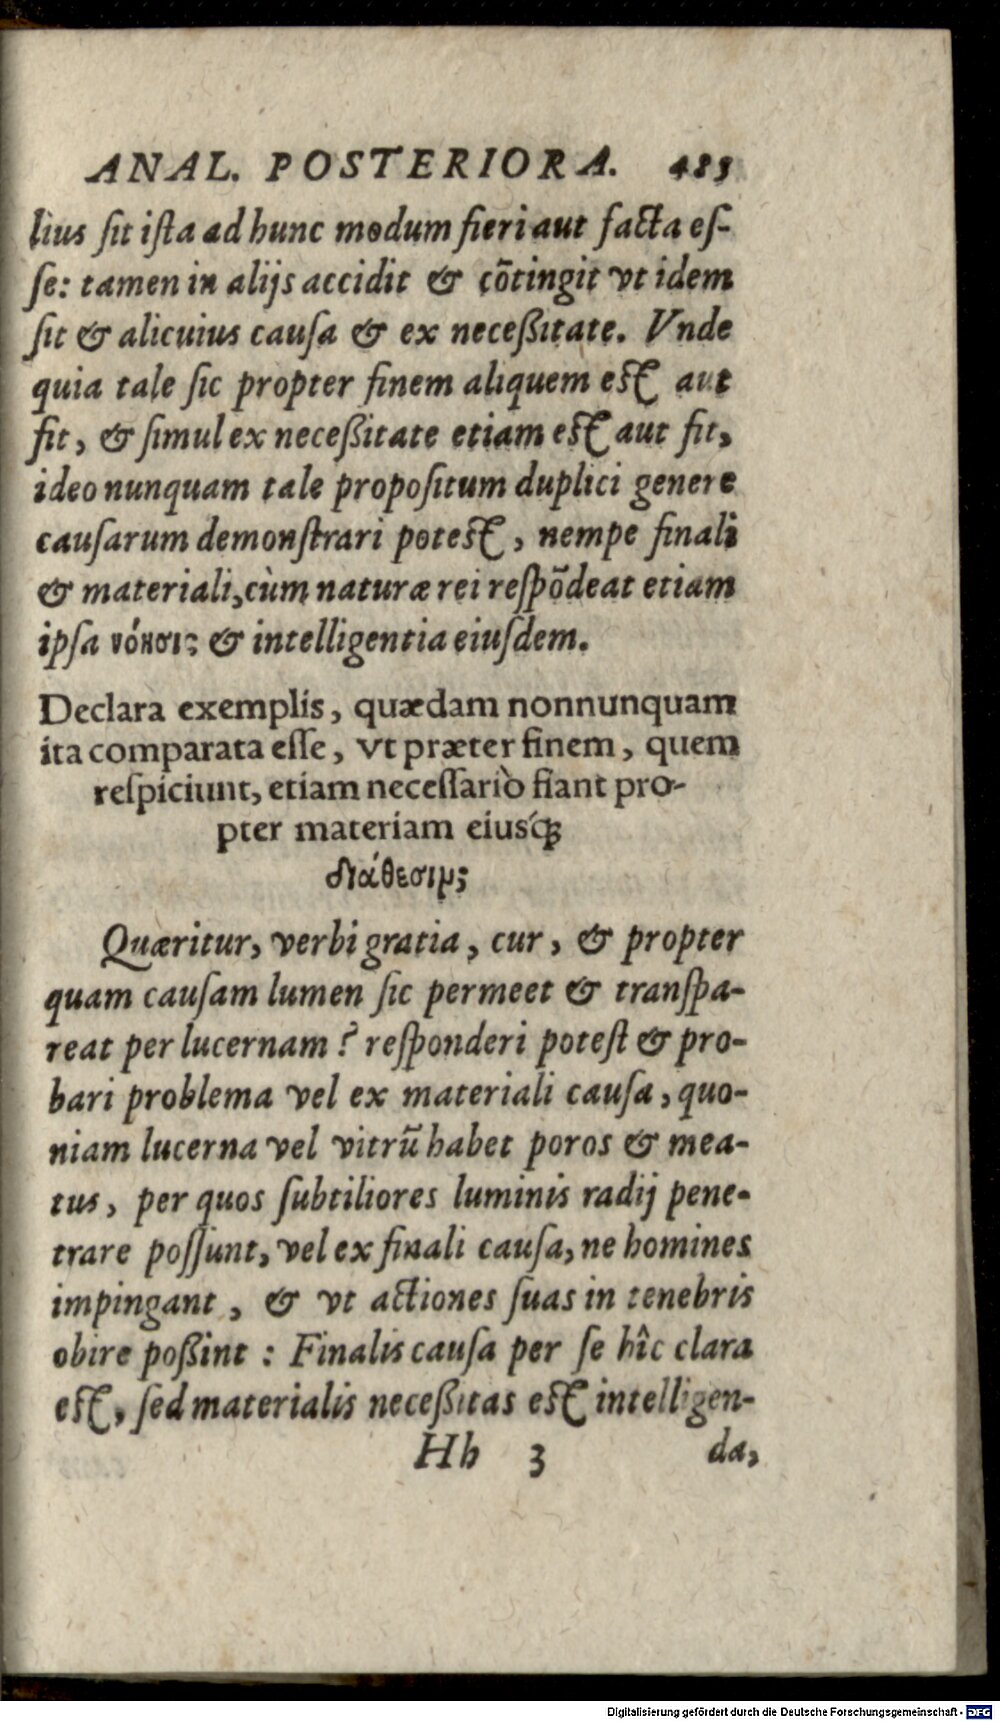 ANAL. POSTERIORA. 485
lius ſit iſta ad hunc modum fieri aut facta eſ-
ſe: tamen in alijs accidit & cōtingit vt idem
ſit & alicuius cauſa & ex neceßitate. Vnde
quia tale ſic propter finem aliquem eſt aut
fit, & ſimul ex neceßitate etiam eſt aut fit,
ideo nunquam tale propoſitum duplici genere
cauſarum demonſtrari poteſt, nempe finali
& materiali, cùm naturæ rei reſpōdeat etiam
ipſa νόησις & intelligentia eiuſdem.
Declara exemplis, quædam nonnunquam
ita comparata eſſe, vt præter finem, quem
reſpiciunt, etiam neceſſariò fiant pro-
pter materiam eiusq́;
διάθεσιμ;
Quæritur, verbi gratia, cur, & propter
quam cauſam lumen ſic permeet & tranſpa-
reat per lucernam? reſponderi poteſt & pro-
bari problema vel ex materiali cauſa, quo-
niam lucerna vel vitrū habet poros & mea-
tus, per quos ſubtiliores luminis radij pene-
trare poſſunt, vel ex finali cauſa, ne homines
impingant, & vt actiones ſuas in tenebris
obire poßint: Finalis cauſa per ſe hîc clara
eſt, ſed materialis neceßitas eſt intelligen-
Hh 3 da,
Digitalisierung gefördert durch die Deutsche Forschungsgemeinschaft - DFG